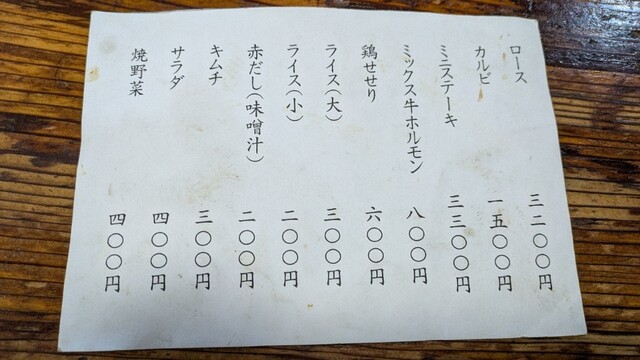 ロース 三二〇〇円
カルビ 一五〇〇円
ミニステーキ 三三〇〇円
ミックス牛ホルモン 八〇〇円
鶏せせり 六〇〇円
ライス(大) 三〇〇円
ライス(小) 二〇〇円
赤だし(味噌汁) 二〇〇円
キムチ 三〇〇円
サラダ 四〇〇円
焼野菜 四〇〇円